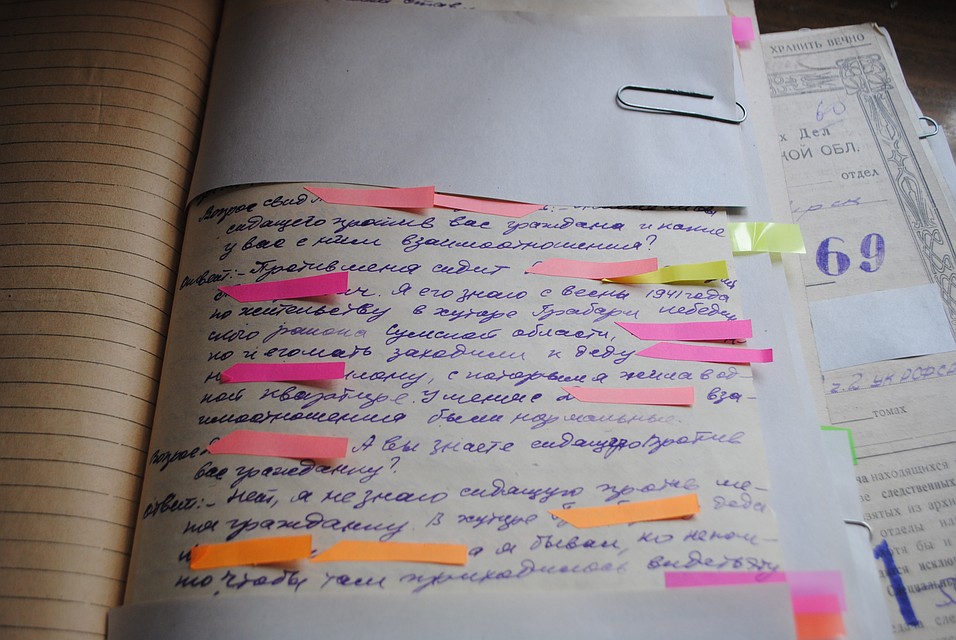 Вопрос свид
сидящего против вас гражданина и какие
у вас с ним взаимоотношения?
ответ:- Против меня сидит
ич. Я его знаю с весны 1941 года
по жительству в хуторе Грабари
ского района Сумской области,
но и его мать заходили к деду
, с которым я жила в од-
ной квартире. У меня с вза-
имоотношения были нормальные.
Вопрос: А вы знаете сидящую против
вас гражданку?
Ответ:- Нет, я не знаю сидящую против ме-
ня гражданку. В хуторе деда
а я бывал, но не пом-
ню, чтобы там приходилось видеть эту
ХРАНИТЬ ВЕЧНО
60
х Дел
НОЙ ОБЛ.
отдел
69
г.2 УК РСФСР
томах
на находящихся
е следственных
взятых из архи
отделы
отя бы и
ся исклю
Специальны
1